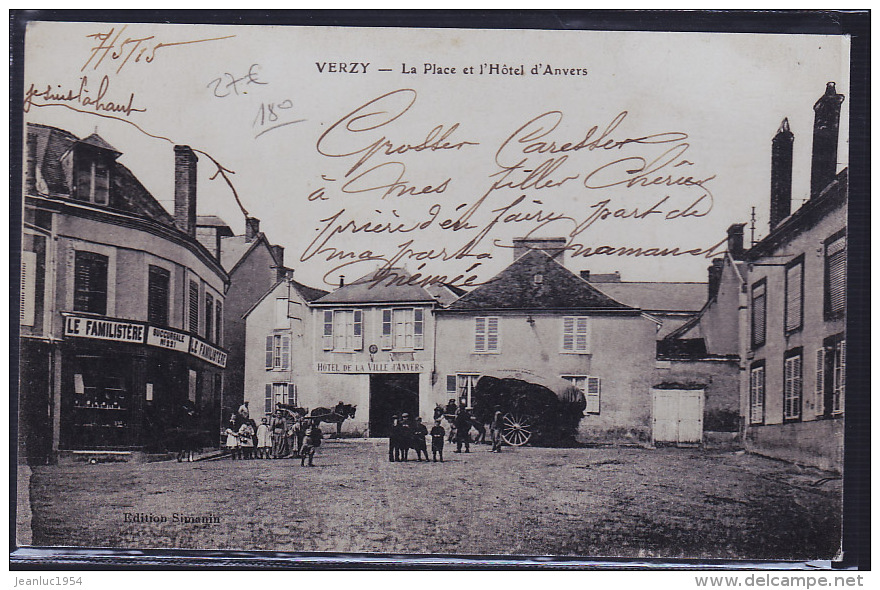 7/5/15
27.€
18°
VERZY — La Place et l'Hôtel d'Anvers
je suis à ahant
Grosses Caresses
à Mes filles Chéries
prière d'en faire part de
ma part a mamand
mémée
LE FAMILISTÈRE
SUCCURSALE
No 221
LE FAMILISTÈRE
HOTEL DE LA VILLE D'ANVERS
Edition Simonin
jeanluc1954
www.delcampe.net